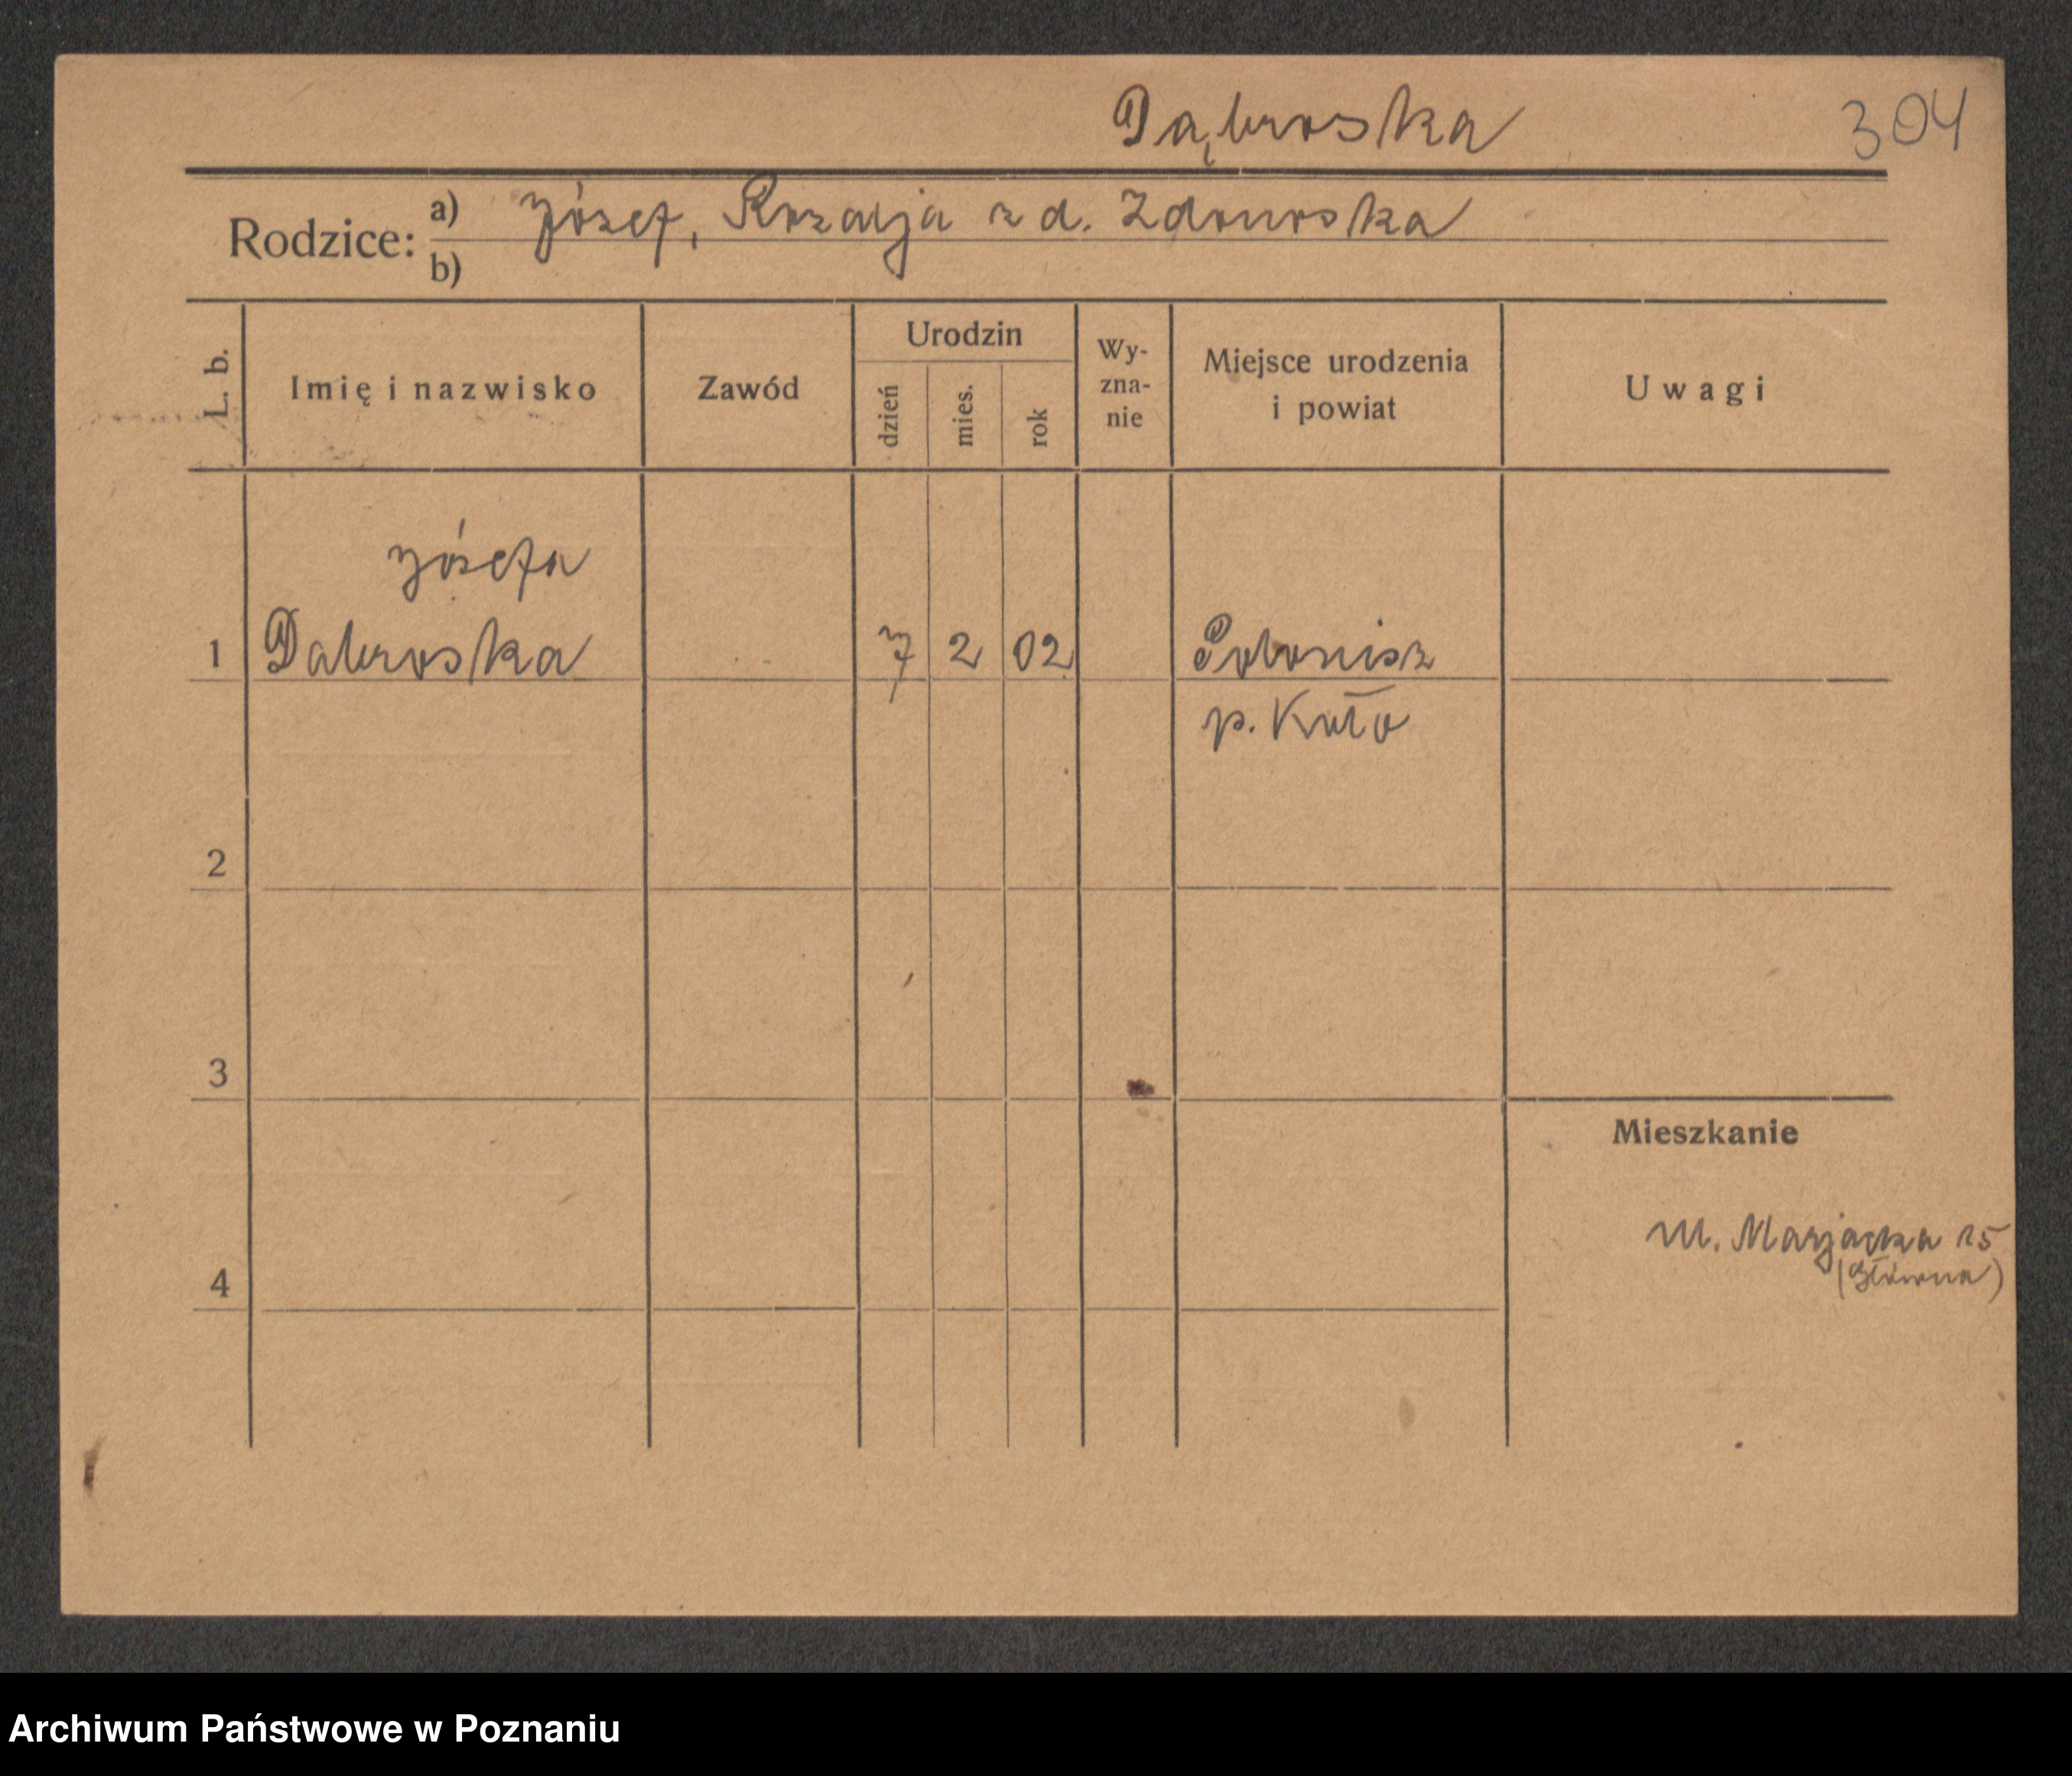 Dąbroska
304
Rodzice: a) Józef, Rozalja z d. Zdonoska
b)
L. b.
Imię i nazwisko
Zawód
Urodzin
dzień
mies.
rok
Wy-
zna-
nie
Miejsce urodzenia
i powiat
Uwagi
Józefa
1 Dabroska 7 2 02
p. Koło
2
3
Mieszkanie
ul. Marjacka 15
(Główna)
4
Archiwum Państwowe w Poznaniu